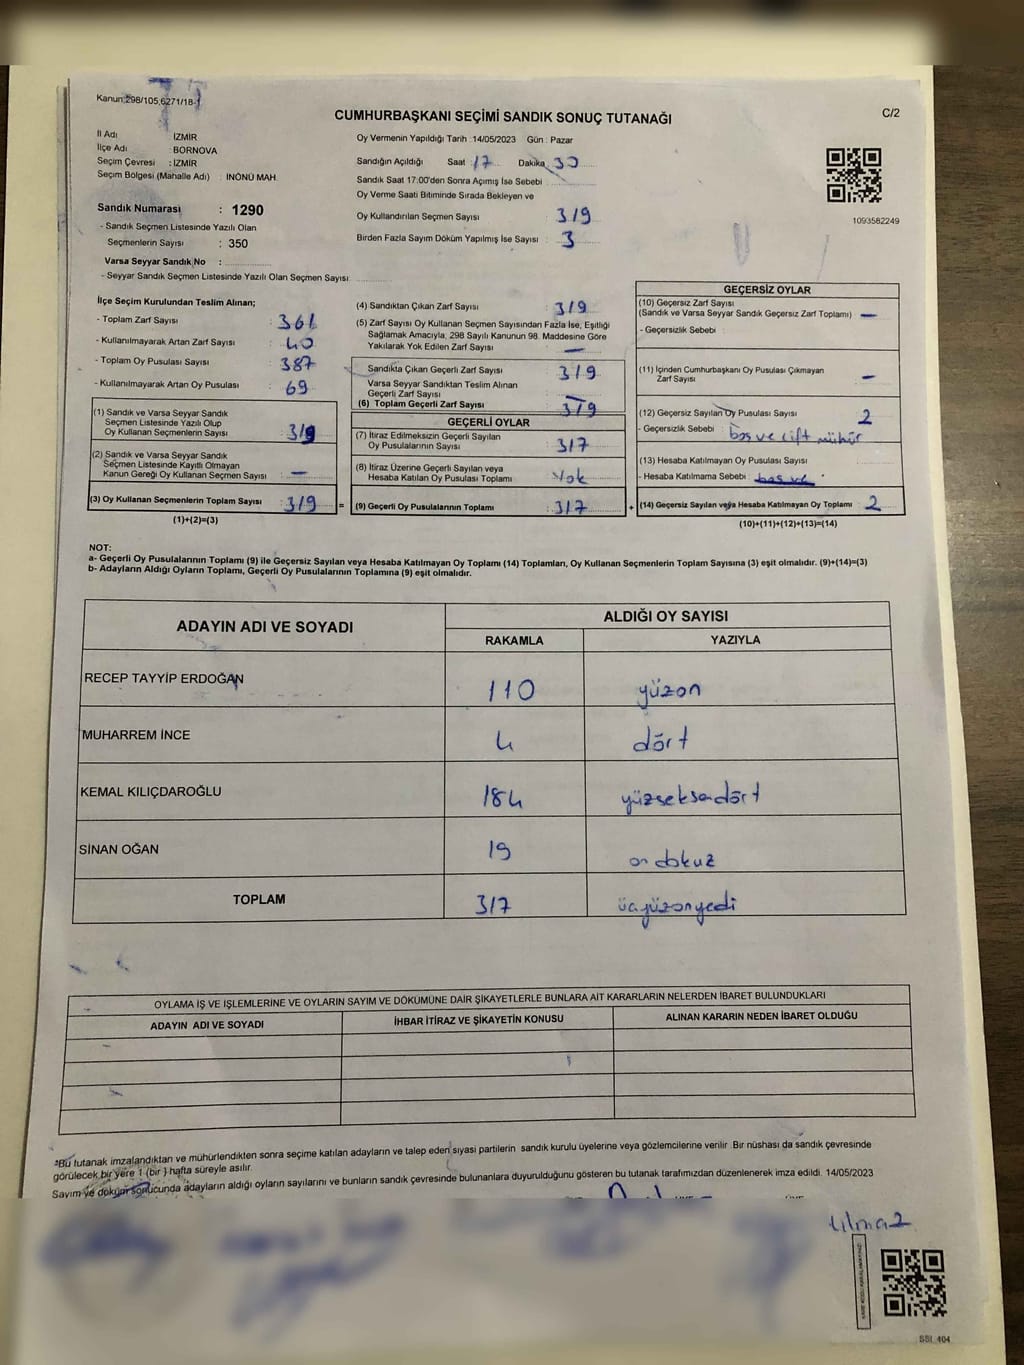 Kanun:298/105,6271/18-1
CUMHURBAŞKANI SEÇİMİ SANDIK SONUÇ TUTANAĞI
C/2
İl Adı : İZMİR
İlçe Adı : BORNOVA
Seçim Çevresi : İZMİR
Seçim Bölgesi (Mahalle Adı) : İNÖNÜ MAH.
Sandık Numarası : 1290
- Sandık Seçmen Listesinde Yazılı Olan
Seçmenlerin Sayısı : 350
Varsa Seyyar Sandık No :
- Seyyar Sandık Seçmen Listesinde Yazılı Olan Seçmen Sayısı
Oy Vermenin Yapıldığı Tarih :14/05/2023 Gün : Pazar
Sandığın Açıldığı Saat :17 Dakika 30
Sandık Saat 17:00'den Sonra Açımış İse Sebebi
Oy Verme Saati Bitiminde Sırada Bekleyen ve
Oy Kullandırılan Seçmen Sayısı : 319
Birden Fazla Sayım Döküm Yapılmış İse Sayısı : 3
1093582249
İlçe Seçim Kurulundan Teslim Alınan;
- Toplam Zarf Sayısı : 361
- Kullanılmayarak Artan Zarf Sayısı : 40
- Toplam Oy Pusulası Sayısı : 387
- Kullanılmayarak Artan Oy Pusulası : 69
(1) Sandık ve Varsa Seyyar Sandık
Seçmen Listesinde Yazılı Olup
Oy Kullanan Seçmenlerin Sayısı : 319
(2) Sandık ve Varsa Seyyar Sandık
Seçmen Listesinde Kayıtlı Olmayan
Kanun Gereği Oy Kullanan Seçmen Sayısı : —
(3) Oy Kullanan Seçmenlerin Toplam Sayısı : 319 =
(1)+(2)=(3)
(4) Sandıktan Çıkan Zarf Sayısı : 319
(5) Zarf Sayısı Oy Kullanan Seçmen Sayısından Fazla İse, Eşitliği
Sağlamak Amacıyla, 298 Sayılı Kanunun 98. Maddesine Göre
Yakılarak Yok Edilen Zarf Sayısı : —
Sandıkta Çıkan Geçerli Zarf Sayısı : 319
Varsa Seyyar Sandıktan Teslim Alınan
Geçerli Zarf Sayısı : —
(6) Toplam Geçerli Zarf Sayısı : 319
GEÇERLİ OYLAR
(7) İtiraz Edilmeksizin Geçerli Sayılan
Oy Pusulalarının Sayısı : 317
(8) İtiraz Üzerine Geçerli Sayılan veya
Hesaba Katılan Oy Pusulası Toplamı : Yok
(9) Geçerli Oy Pusulalarının Toplamı : 317 +
GEÇERSİZ OYLAR
(10) Geçersiz Zarf Sayısı
(Sandık ve Varsa Seyyar Sandık Geçersiz Zarf Toplamı) : —
- Geçersizlik Sebebi :
(11) İçinden Cumhurbaşkanı Oy Pusulası Çıkmayan
Zarf Sayısı : —
(12) Geçersiz Sayılan Oy Pusulası Sayısı : 2
- Geçersizlik Sebebi : boş ve çift mühür
(13) Hesaba Katılmayan Oy Pusulası Sayısı :
- Hesaba Katılmama Sebebi : boş ve
(14) Geçersiz Sayılan veya Hesaba Katılmayan Oy Toplamı : 2
(10)+(11)+(12)+(13)=(14)
NOT:
a- Geçerli Oy Pusulalarının Toplamı (9) ile Geçersiz Sayılan veya Hesaba Katılmayan Oy Toplamı (14) Toplamları, Oy Kullanan Seçmenlerin Toplam Sayısına (3) eşit olmalıdır. (9)+(14)=(3)
b- Adayların Aldığı Oyların Toplamı, Geçerli Oy Pusulalarının Toplamına (9) eşit olmalıdır.
ADAYIN ADI VE SOYADI
ALDIĞI OY SAYISI
RAKAMLA YAZIYLA
RECEP TAYYİP ERDOĞAN 110 yüzon
MUHARREM İNCE 4 dört
KEMAL KILIÇDAROĞLU 184 yüzseksendört
SİNAN OĞAN 19 on dokuz
TOPLAM 317 üçyüzonyedi
OYLAMA İŞ VE İŞLEMLERİNE VE OYLARIN SAYIM VE DÖKÜMÜNE DAİR ŞİKAYETLERLE BUNLARA AİT KARARLARIN NELERDEN İBARET BULUNDUKLARI
ADAYIN ADI VE SOYADI İHBAR İTİRAZ VE ŞİKAYETİN KONUSU ALINAN KARARIN NEDEN İBARET OLDUĞU
*Bu tutanak imzalandıktan ve mühürlendikten sonra seçime katılan adayların ve talep eden siyasi partilerin sandık kurulu üyelerine veya gözlemcilerine verilir. Bir nüshası da sandık çevresinde
görülecek bir yere 1 (bir) hafta süreyle asılır.
Sayım ve döküm sonucunda adayların aldığı oyların sayılarını ve bunların sandık çevresinde bulunanlara duyurulduğunu gösteren bu tutanak tarafımızdan düzenlenerek imza edildi. 14/05/2023
Yılmaz
SSI 404